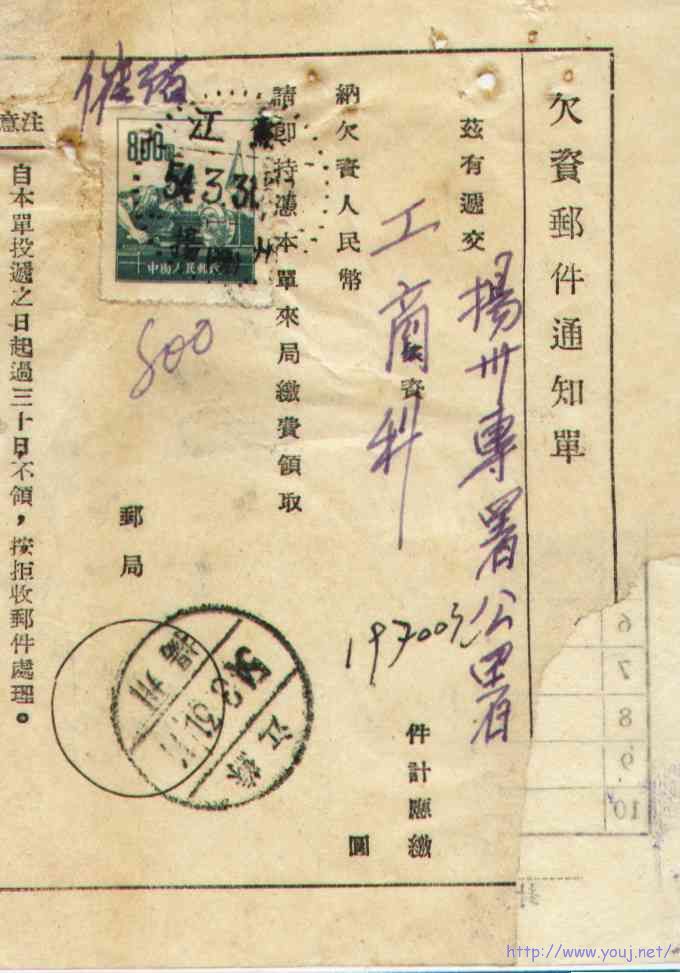 欠資郵件通知單
茲有遞交 揚州專署公署
工商科
件計應繳
納欠資人民幣
圓
請即持憑本單來局繳費領取
郵局
注意
自本單投遞之日起過三十日不領，按拒收郵件處理。
800
中国人民郵政
江蘇
54.3.31
揚州
800
揚州
江蘇
6
7
8
9
10
http://www.youj.net/